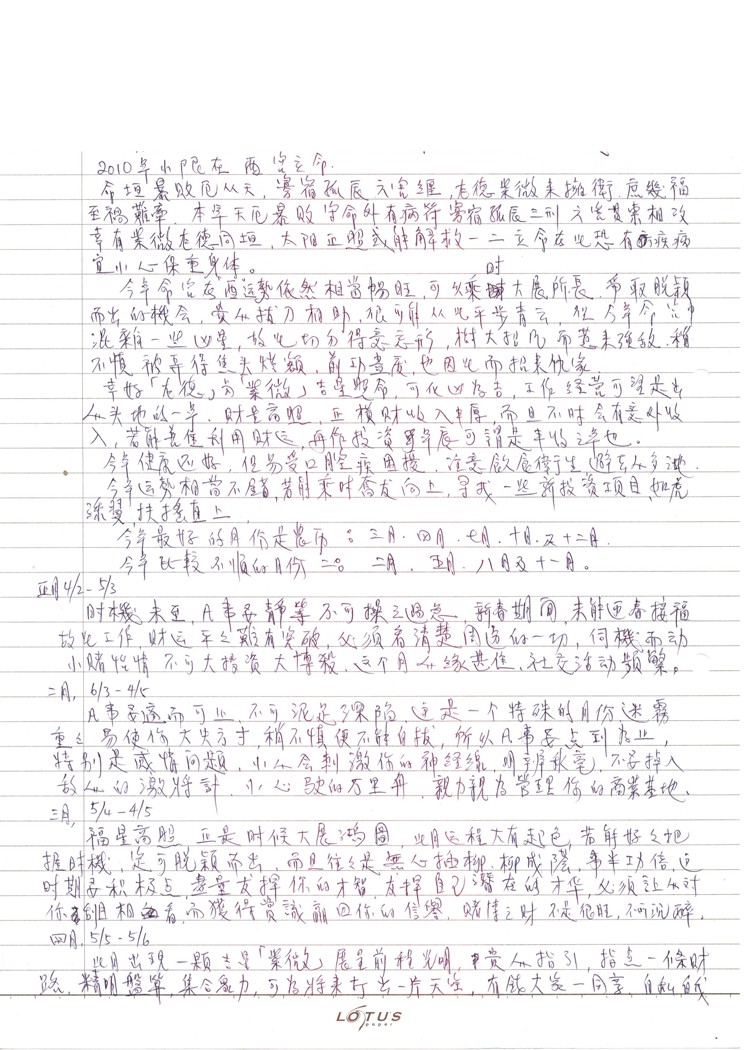 2010年小限在酉宮立命.
命垣暴敗厄从天, 寡宿孤辰六害纏, 龙德紫微来擁衛, 庶幾福
至祸難牽. 本年天厄暴敗守命外有病符寡宿孤辰三刑六害貫索相攻
幸有紫微龙德同垣, 太阳正照或能解救一二立命在此恐有疾病
宜小心保重身体。
今年命宮在酉运势依然相當暢旺, 可以乘时大展所長, 争取脱穎
而出的機会, 贵人拔刀相助, 很可能从此平步青云, 但今年命宮中
混雜一些凶星, 故此切勿得意忘形, 樹大招风而惹来强敌, 稍
不慎被弄得焦头烂额, 前功盡废, 也因此而招来仇缘.
幸好「龙德」与「紫微」吉星照命, 可化凶为吉, 工作经营可望是出
人头地的一年, 财星高照, 正横财收入丰厚, 而且不时会有意外收
入, 若能善焦利用财运, 再作投资 年底可謂是丰收之年也.
今年健康还好, 但易受口腔疾困擾, 注意飲食衛生,
今年运势相當不錯, 若能乘时奮发向上, 寻找一些新投资項目, 如虎
添翼, 扶搖直上.
今年最好的月份是農历: 三月. 四月. 七月. 十月. 及十二月.
今年比較不順的月份二: 二月、五月. 八月及十一月。
正月 4/2 - 5/3
时機未至, 凡事要靜等不可操之過急. 新春期间, 未能迎春接福
故此工作, 财运平乏難有突破, 必须看清楚周遭的一切, 伺機而动
小赌怡情不可大投资大博殺. 这个月人缘甚佳, 社交活动頻繁。
二月, 6/3 - 4/5
凡事要適可而止, 不可泥足深陷, 这是一个特殊的月份迷霧
重之易使你大失方寸, 稍不慎便不能自拔, 所以凡事要点到为止,
特别是感情问题, 小人会刺激你的神经線, 明辨秋毫, 不要掉入
敌人的激将計. 小心駛的万里舟. 親力親为管理你的商業基地.
三月, 5/4 - 4/5
福星高照. 正是时候大展鸿圖, 此月运程大有起色. 若能好之把
握时機, 定可脱穎而出, 而且往之是無心插柳, 柳成蔭, 事半功倍, 这
时期要积极点, 盡量发揮你的才智, 发揮自己潛在的才华, 必须让人对
你刮目相看, 而獲得赏識贏回你的信譽. 赌博之财不是很旺, 不可沉醉.
四月, 5/5 - 5/6
此月出現一颗吉星「紫微」展呈前程光明, 贵人指引, 指点一條财
路, 精明盤算, 集合衆力, 可为将来打出一片天空, 有錢大家一同享,
LOTUS
paper